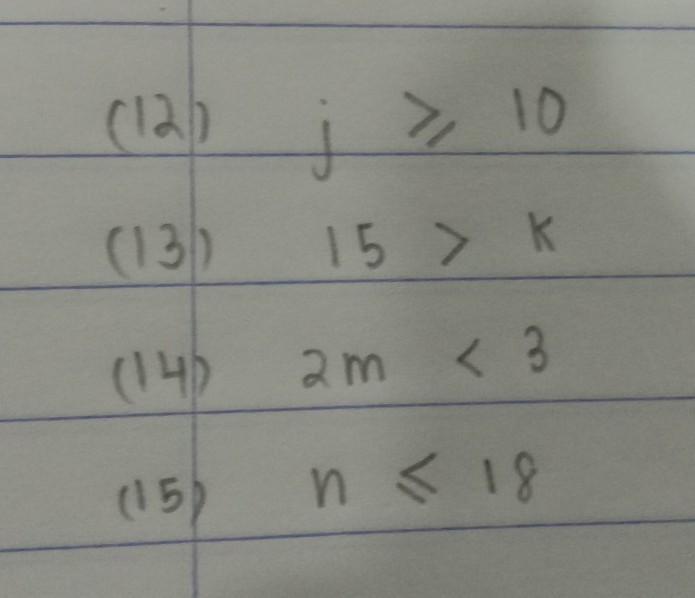 (12) j ⩾ 10
(13) 15 > k
(14) 2m < 3
(15) n ⩽ 18